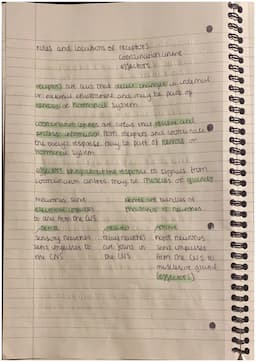 roles and locations of receptors,
coordination centre
effectors
receptors are cells that detect changes in internal
or external environment and may be part of
nervous or hormonal system
coordination centres are areas that receive and
process information from receptors and coordinate
the body's response. may be part of nervous or
hormonal system
effectors bring about the response to signals from
coordination centres. may be muscles or glands
neurones send
electrical impulses
to and from the CNS
nerves are bundles of
thousands of neurones
sensory
relay
motor
sensory neurones
send impulses to
the CNS
relay neurones
are found in
the CNS
motor neurones
send impulses
from the CNS to
muscle or gland
(effectors)